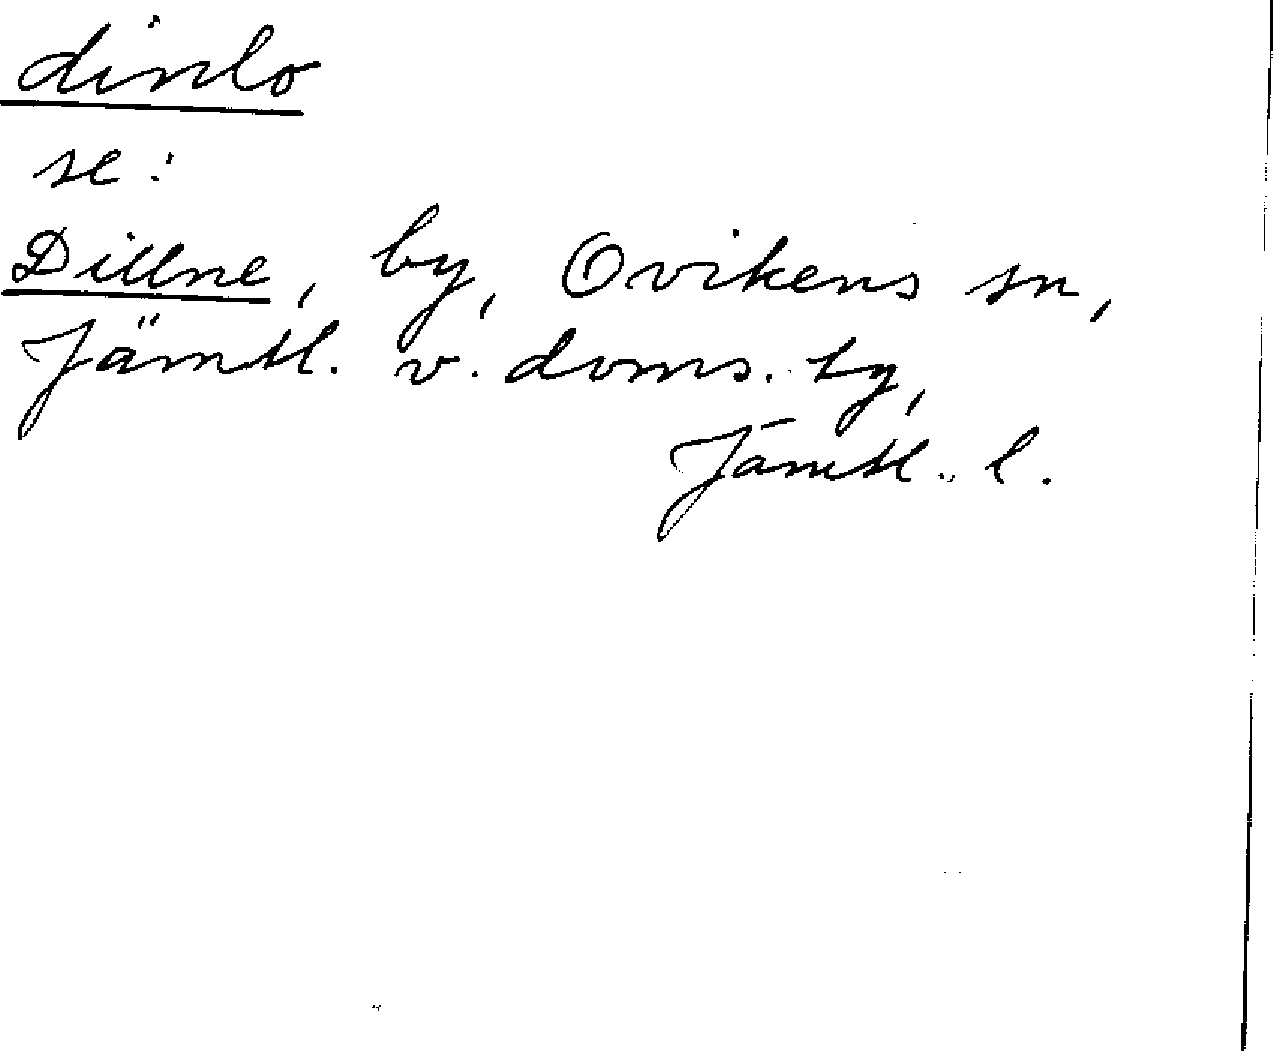 dinlo
se:
Dillne, by, Ovikens sn,
Jämtl. v. doms. tg,
Jämtl. l.